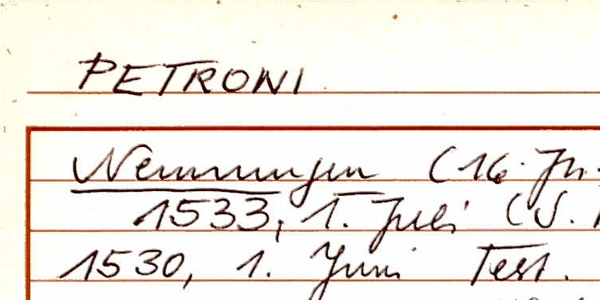 PETRONI
Nennungen (16. Jh.
1533, 1. Juli (S.
1530, 1. Juni Test.